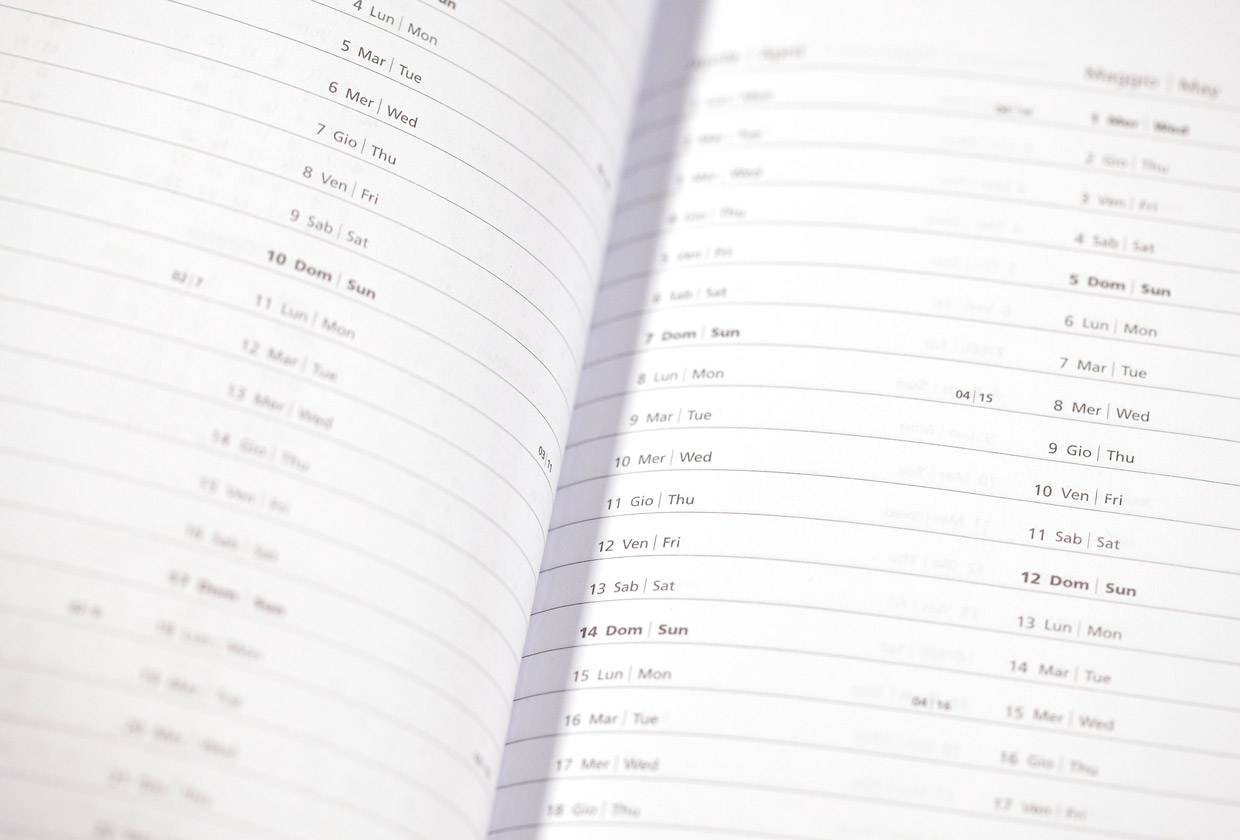 4 Lun | Mon
5 Mar | Tue
6 Mer | Wed
7 Gio | Thu
8 Ven | Fri
9 Sab | Sat
10 Dom | Sun
02 | 7
11 Lun | Mon
12 Mar | Tue
13 Mer | Wed
14 Gio | Thu
15 Ven | Fri
16 Sab | Sat
17 Dom | Sun
18 Lun | Mon
03 | 11
April
4 Gio | Thu
5 Ven | Fri
6 Sab | Sat
7 Dom | Sun
8 Lun | Mon
04 | 15
9 Mar | Tue
10 Mer | Wed
11 Gio | Thu
12 Ven | Fri
13 Sab | Sat
14 Dom | Sun
15 Lun | Mon
04 | 16
16 Mar | Tue
17 Mer | Wed
18 Gio | Thu
Maggio | May
1 Mer | Wed
2 Gio | Thu
3 Ven | Fri
4 Sab | Sat
5 Dom | Sun
6 Lun | Mon
7 Mar | Tue
8 Mer | Wed
9 Gio | Thu
10 Ven | Fri
11 Sab | Sat
12 Dom | Sun
13 Lun | Mon
14 Mar | Tue
15 Mer | Wed
16 Gio | Thu
17 Ven | Fri